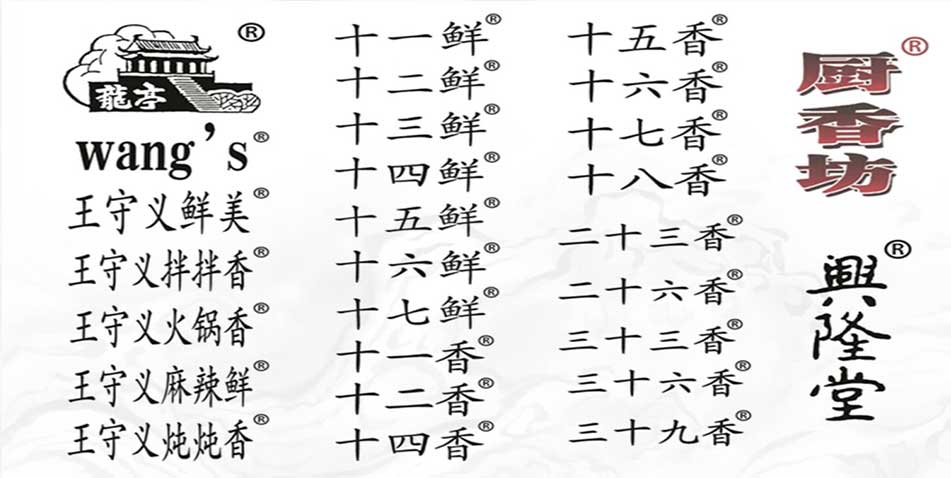 龍亭®
wang's®
王守义鲜美®
王守义拌拌香®
王守义火锅香®
王守义麻辣鲜®
王守义炖炖香®
十一鲜®
十二鲜®
十三鲜®
十四鲜®
十五鲜®
十六鲜®
十七鲜®
十一香®
十二香®
十四香®
十五香®
十六香®
十七香®
十八香®
二十三香®
二十六香®
三十三香®
三十六香®
三十九香®
厨香坊®
興隆堂®